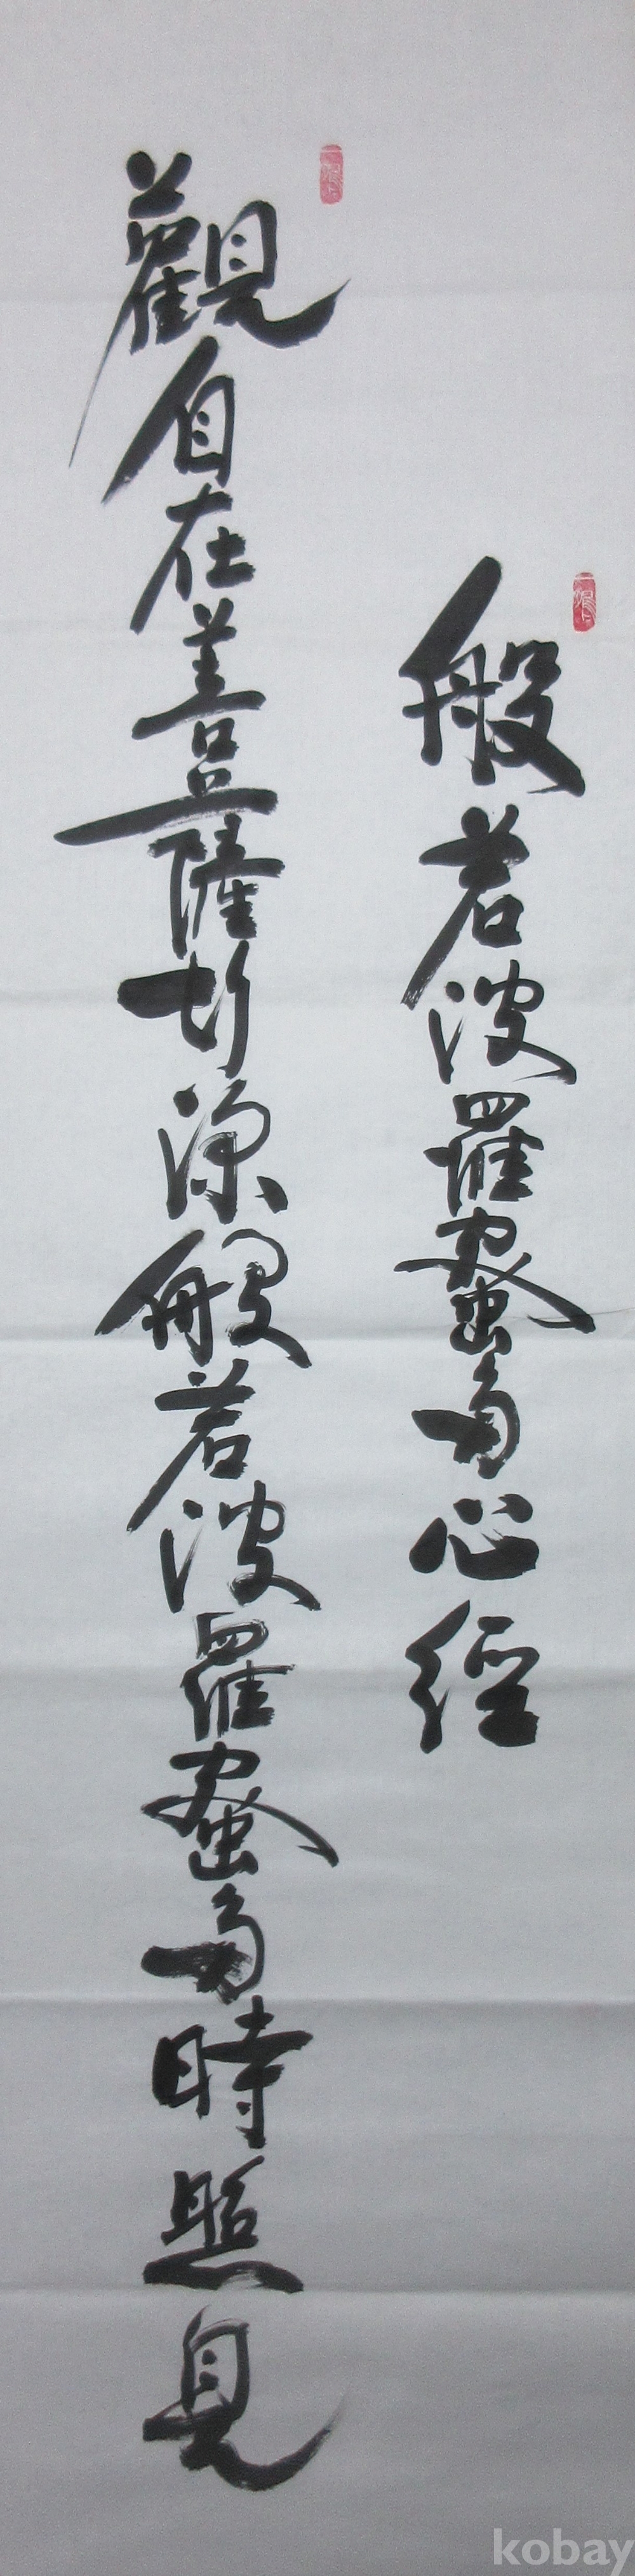 般若波羅蜜多心經
觀自在菩薩行深般若波羅蜜多時照見
kobay